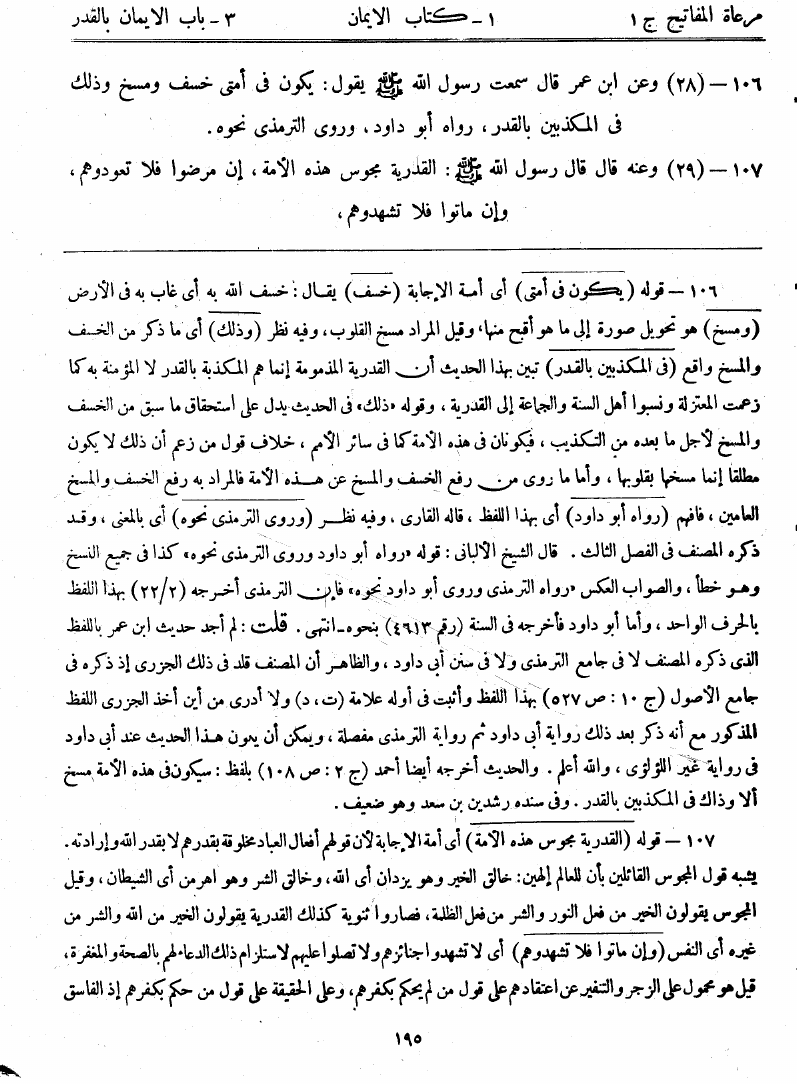 مرعاة المفاتيح ج ١ ١ - كتاب الايمان ٣ - باب الايمان بالقدر
١٠٦ – (٢٨) وعن ابن عمر قال سمعت رسول الله ﷺ يقول: يكون فى أمتى خسف ومسخ وذلك
فى المكذبين بالقدر، رواه أبو داود، وروى الترمذى نحوه.
١٠٧ – (٢٩) وعنه قال قال رسول الله ﷺ: القدرية مجوس هذه الأمة، إن مرضوا فلا تعودوهم،
وإن ماتوا فلا تشهدوهم،
١٠٦ – قوله (يكون فى أمتى) أى أمة الإجابة (خسف) يقال: خسف الله به أى غاب به فى الأرض
(ومسخ) هو تحويل صورة إلى ما هو أقبح منها، وقيل المراد مسخ القلوب، وفيه نظر (وذلك) أى ما ذكر من الخسف
والمسخ واقع (فى المكذبين بالقدر) تبين بهذا الحديث أن القدرية المذمومة إنما هم المكذبة بالقدر لا المؤمنة به كما
زعمت المعتزلة ونسبوا أهل السنة والجماعة إلى القدرية، وقوله «ذلك» فى الحديث يدل على استحقاق ما سبق من الخسف
والمسخ لأجل ما بعده من التكذيب، فيكونان فى هذه الأمة كما فى سائر الأمم، خلاف قول من زعم أن ذلك لا يكون
مطلقا إنما مسخها بقلوبها، وأما ما روى من رفع الخسف والمسخ عن هذه الأمة فالمراد به رفع الخسف والمسخ
العامين، فافهم (رواه أبو داود) أى بهذا اللفظ، قاله القارى، وفيه نظر (وروى الترمذى نحوه) أى بالمعنى، وقد
ذكره المصنف فى الفصل الثالث. قال الشيخ الألبانى: قوله «رواه أبو داود وروى الترمذى نحوه» كذا فى جميع النسخ
وهو خطأ، والصواب العكس «رواه الترمذى وروى أبو داود نحوه» فإن الترمذى أخرجه (٢٢/٢) بهذا اللفظ
بالحرف الواحد، وأما أبو داود فأخرجه فى السنة (رقم ٤٦١٣) بنحوه - انتهى. قلت: لم أجد حديث ابن عمر باللفظ
الذى ذكره المصنف لا فى جامع الترمذى ولا فى سنن أبى داود، والظاهر أن المصنف قلد فى ذلك الجزرى إذ ذكره فى
جامع الأصول (ج ١٠: ص ٥٢٧) بهذا اللفظ وأثبت فى أوله علامة (ت، د) ولا أدرى من أين أخذ الجزرى اللفظ
المذكور مع أنه ذكر بعد ذلك رواية أبى داود ثم رواية الترمذى مفصلة، ويمكن أن يعون هذا الحديث عند أبى داود
فى رواية غير اللؤلؤى، والله أعلم. والحديث أخرجه أيضا أحمد (ج ٢: ص ١٠٨) بلفظ: سيكون فى هذه الأمة مسخ
ألا وذاك فى المكذبين بالقدر. وفى سنده رشدين بن سعد وهو ضعيف.
١٠٧ – قوله (القدرية مجوس هذه الأمة) أى أمة الإجابة لأن قولهم أفعال العباد مخلوقة بقدرهم لا بقدر الله وإرادته.
يشبه قول المجوس القائلين بأن للعالم إلهين: خالق الخير وهو يزدان أى الله، وخالق الشر وهو اهرمن أى الشيطان، وقيل
المجوس يقولون الخير من فعل النور والشر من فعل الظلمة، فصاروا ثنوية كذلك القدرية يقولون الخير من الله والشر من
غيره أى النفس (وإن ماتوا فلا تشهدوهم) أى لا تشهدوا جنائزهم ولا تصلوا عليهم لاستلزام ذلك الدعاء لهم بالصحة والمغفرة،
قيل هو محمول على الزجر والتنفير عن اعتقادهم على قول من لم يحكم بكفرهم، وعلى الحقيقة على قول من حكم بكفرهم إذ الفاسق
١٩٥